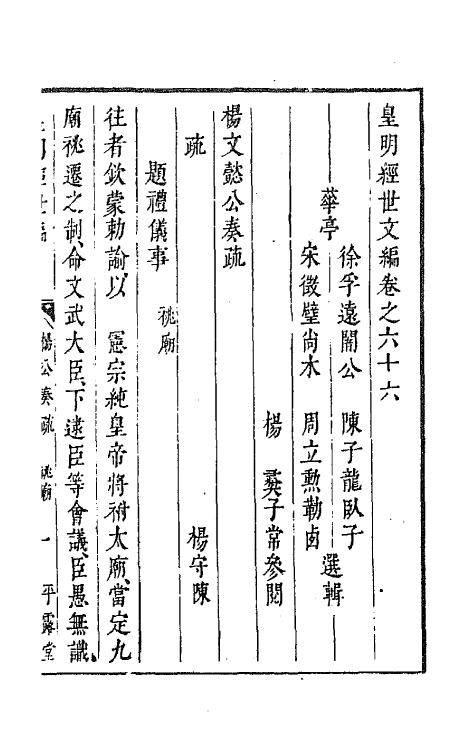 皇明經世文編卷之六十六
華亭
徐孚遠闇公 陳子龍臥子
宋徵璧尚木 周立勳勒卣
選輯
楊 彝子常參閱
楊文懿公奏疏
疏 楊守陳
題禮儀事 祧廟
往者欽蒙勅諭以 憲宗純皇帝將祔太廟當定九
廟祧遷之制命文武大臣下逮臣等會議臣愚無識
楊公奏疏 祧廟 一 平露堂